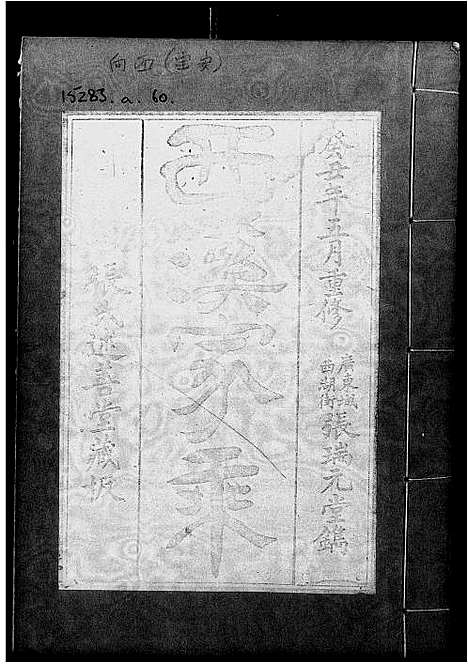 15283.a.60.
癸丑年五月重修
廣東城
西湖街
張瑞元堂鐫
西溪家乘
張氏述善堂藏板